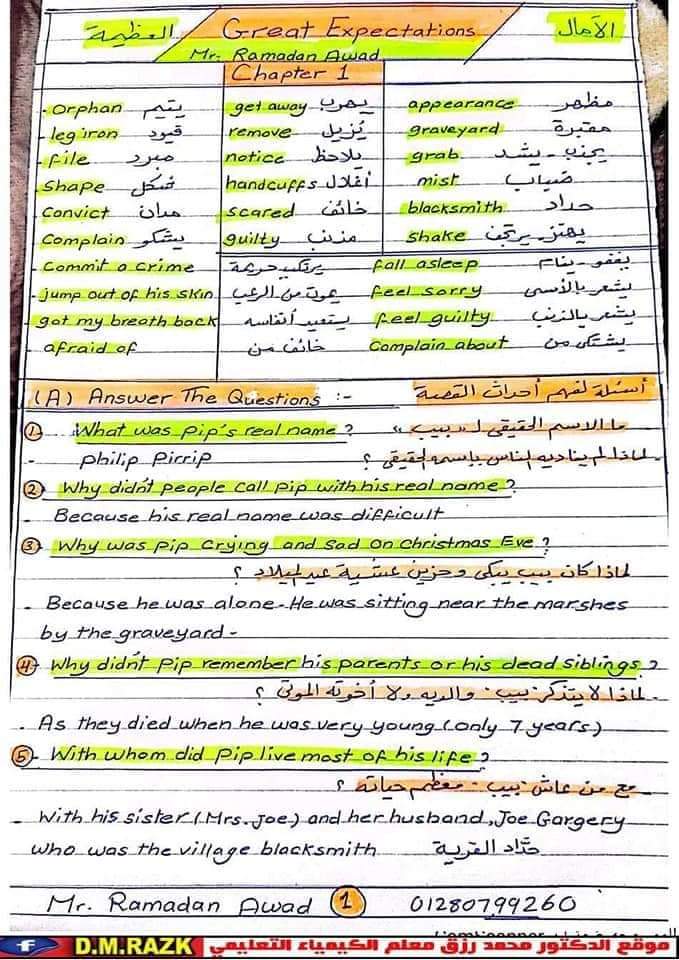 العظيمة Great Expectations الآمال
Mr. Ramadan Awad
Chapter 1
- Orphan يتيم get away يهرب appearance مظهر
- leg iron قيود remove يُزيل graveyard مقبرة
- file مبرد notice يلاحظ grab يجذب - يشد
Shape شكل handcuffs أغلال mist ضباب
Convict مدان scared خائف blacksmith حداد
Complain يشكو guilty مذنب shake يهتز - يرتجف
- Commit a crime يرتكب جريمة fall asleep يغفو - ينام
- jump out of his skin يموت من الرعب feel sorry يشعر بالأسى
- got my breath back يستعيد أنفاسه feel guilty يشعر بالذنب
- afraid of خائف من Complain about يشتكى من
(A) Answer The Questions :- أسئلة لفهم أحداث القصة
1- What was Pip's real name? ما الاسم الحقيقى لـ «بيب»
- Philip Pirrip لماذا لم يناديه الناس بإسمه الحقيقى ؟
2- Why didn't people call Pip with his real name?
. Because his real name was difficult
3- Why was Pip Crying and Sad on Christmas Eve?
لماذا كان بيب يبكى وحزين عشية عيد الميلاد ؟
. Because he was alone - He was sitting near the marshes
by the graveyard -
4- Why didn't Pip remember his parents or his dead siblings?
لماذا لا يتذكر بيب والديه ولا أخوته الموتى ؟
. As they died when he was very young (only 7 years)
5- With whom did Pip live most of his life?
مع من عاش بيب معظم حياته ؟
- With his sister (Mrs. Joe) and her husband, Joe Gargery
who was the village blacksmith حدّاد القرية
Mr. Ramadan Awad 1 01280799260
f D.M.RAZK موقع الدكتور محمد رزق معلم الكيمياء التعليمي